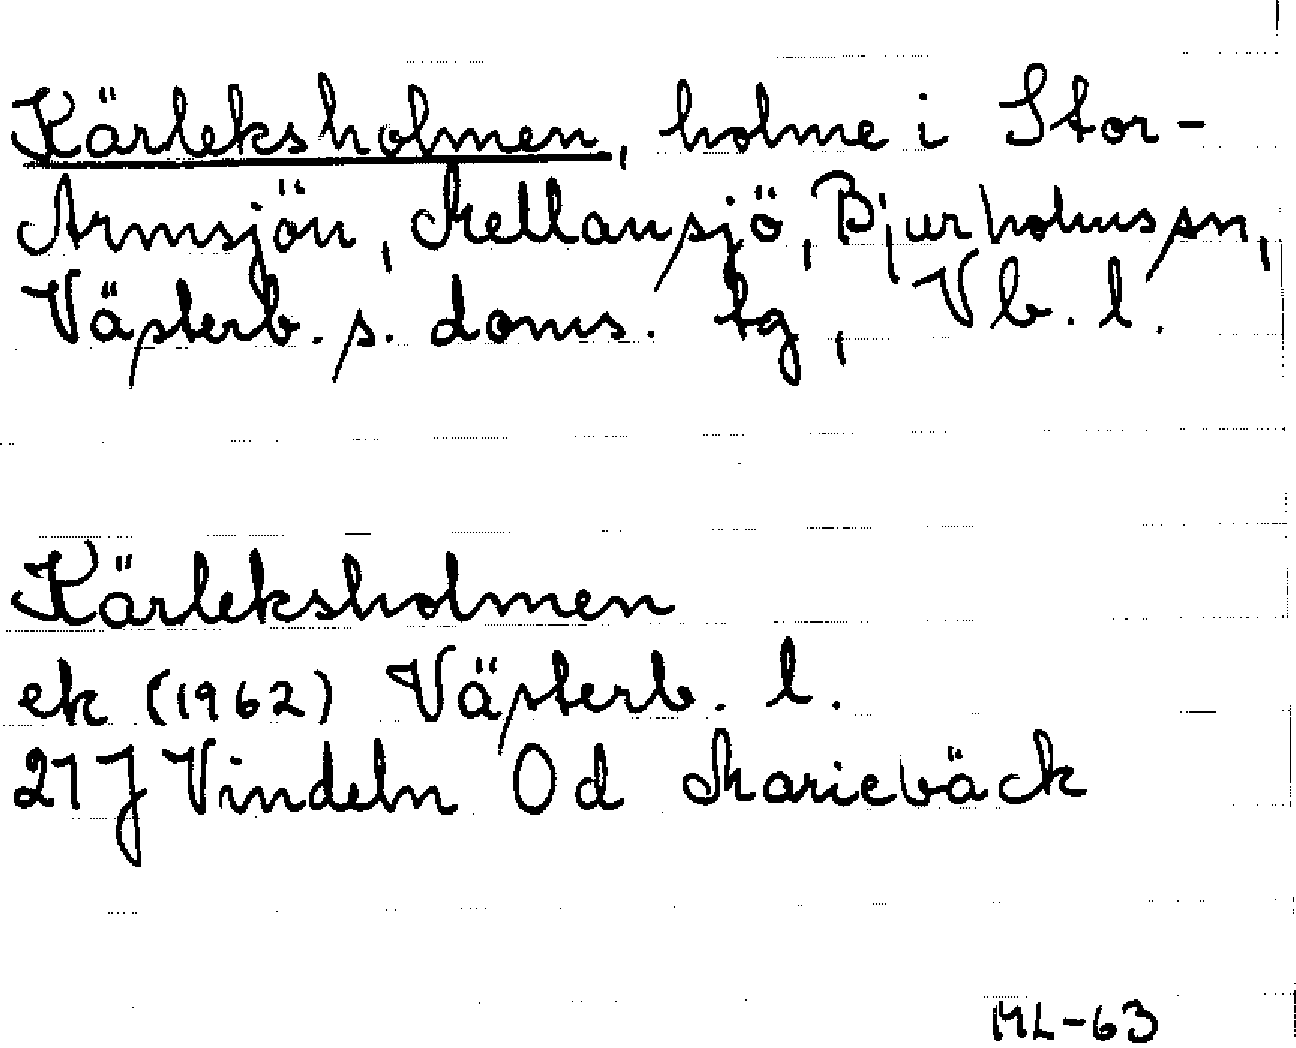 Kärleksholmen, holme i Stor-
Armsjön, Mellansjö, Bjurholms sn,
Västerb. s. doms. tg, Vb. l.
Kärleksholmen
ek (1962) Västerb. l.
21 J Vindeln 0 d Mariebäck
ML-63